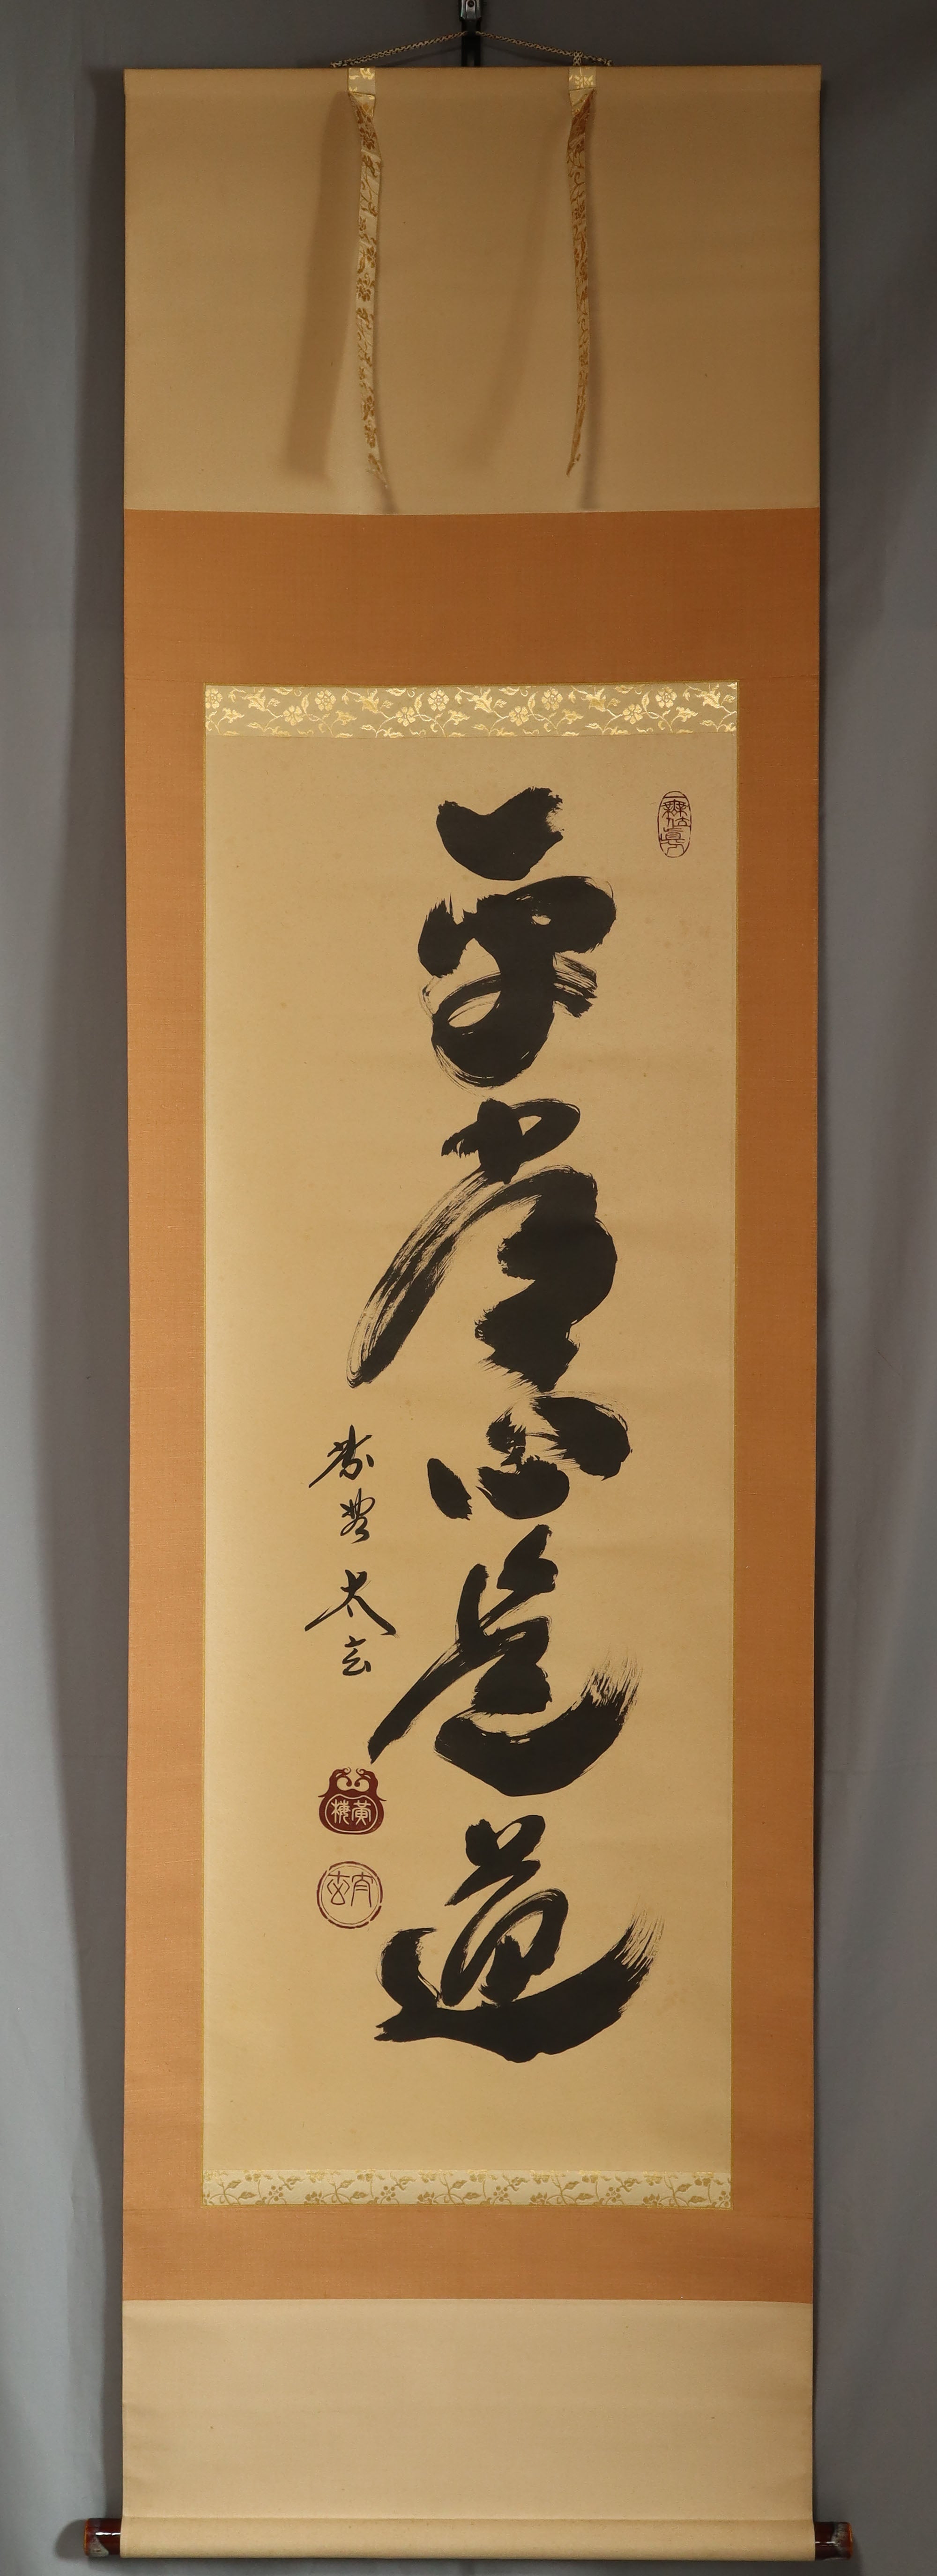 平常心是道
紫野 太玄
黄梅